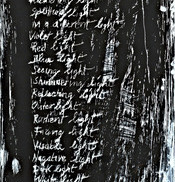 Spotted light
in a different light
Violet light
Red light
Blue light
Seeing light
Shimmering light
Reflecting light
Outer light
Radiant light
Facing light
Visible light
Negative light
Dark light